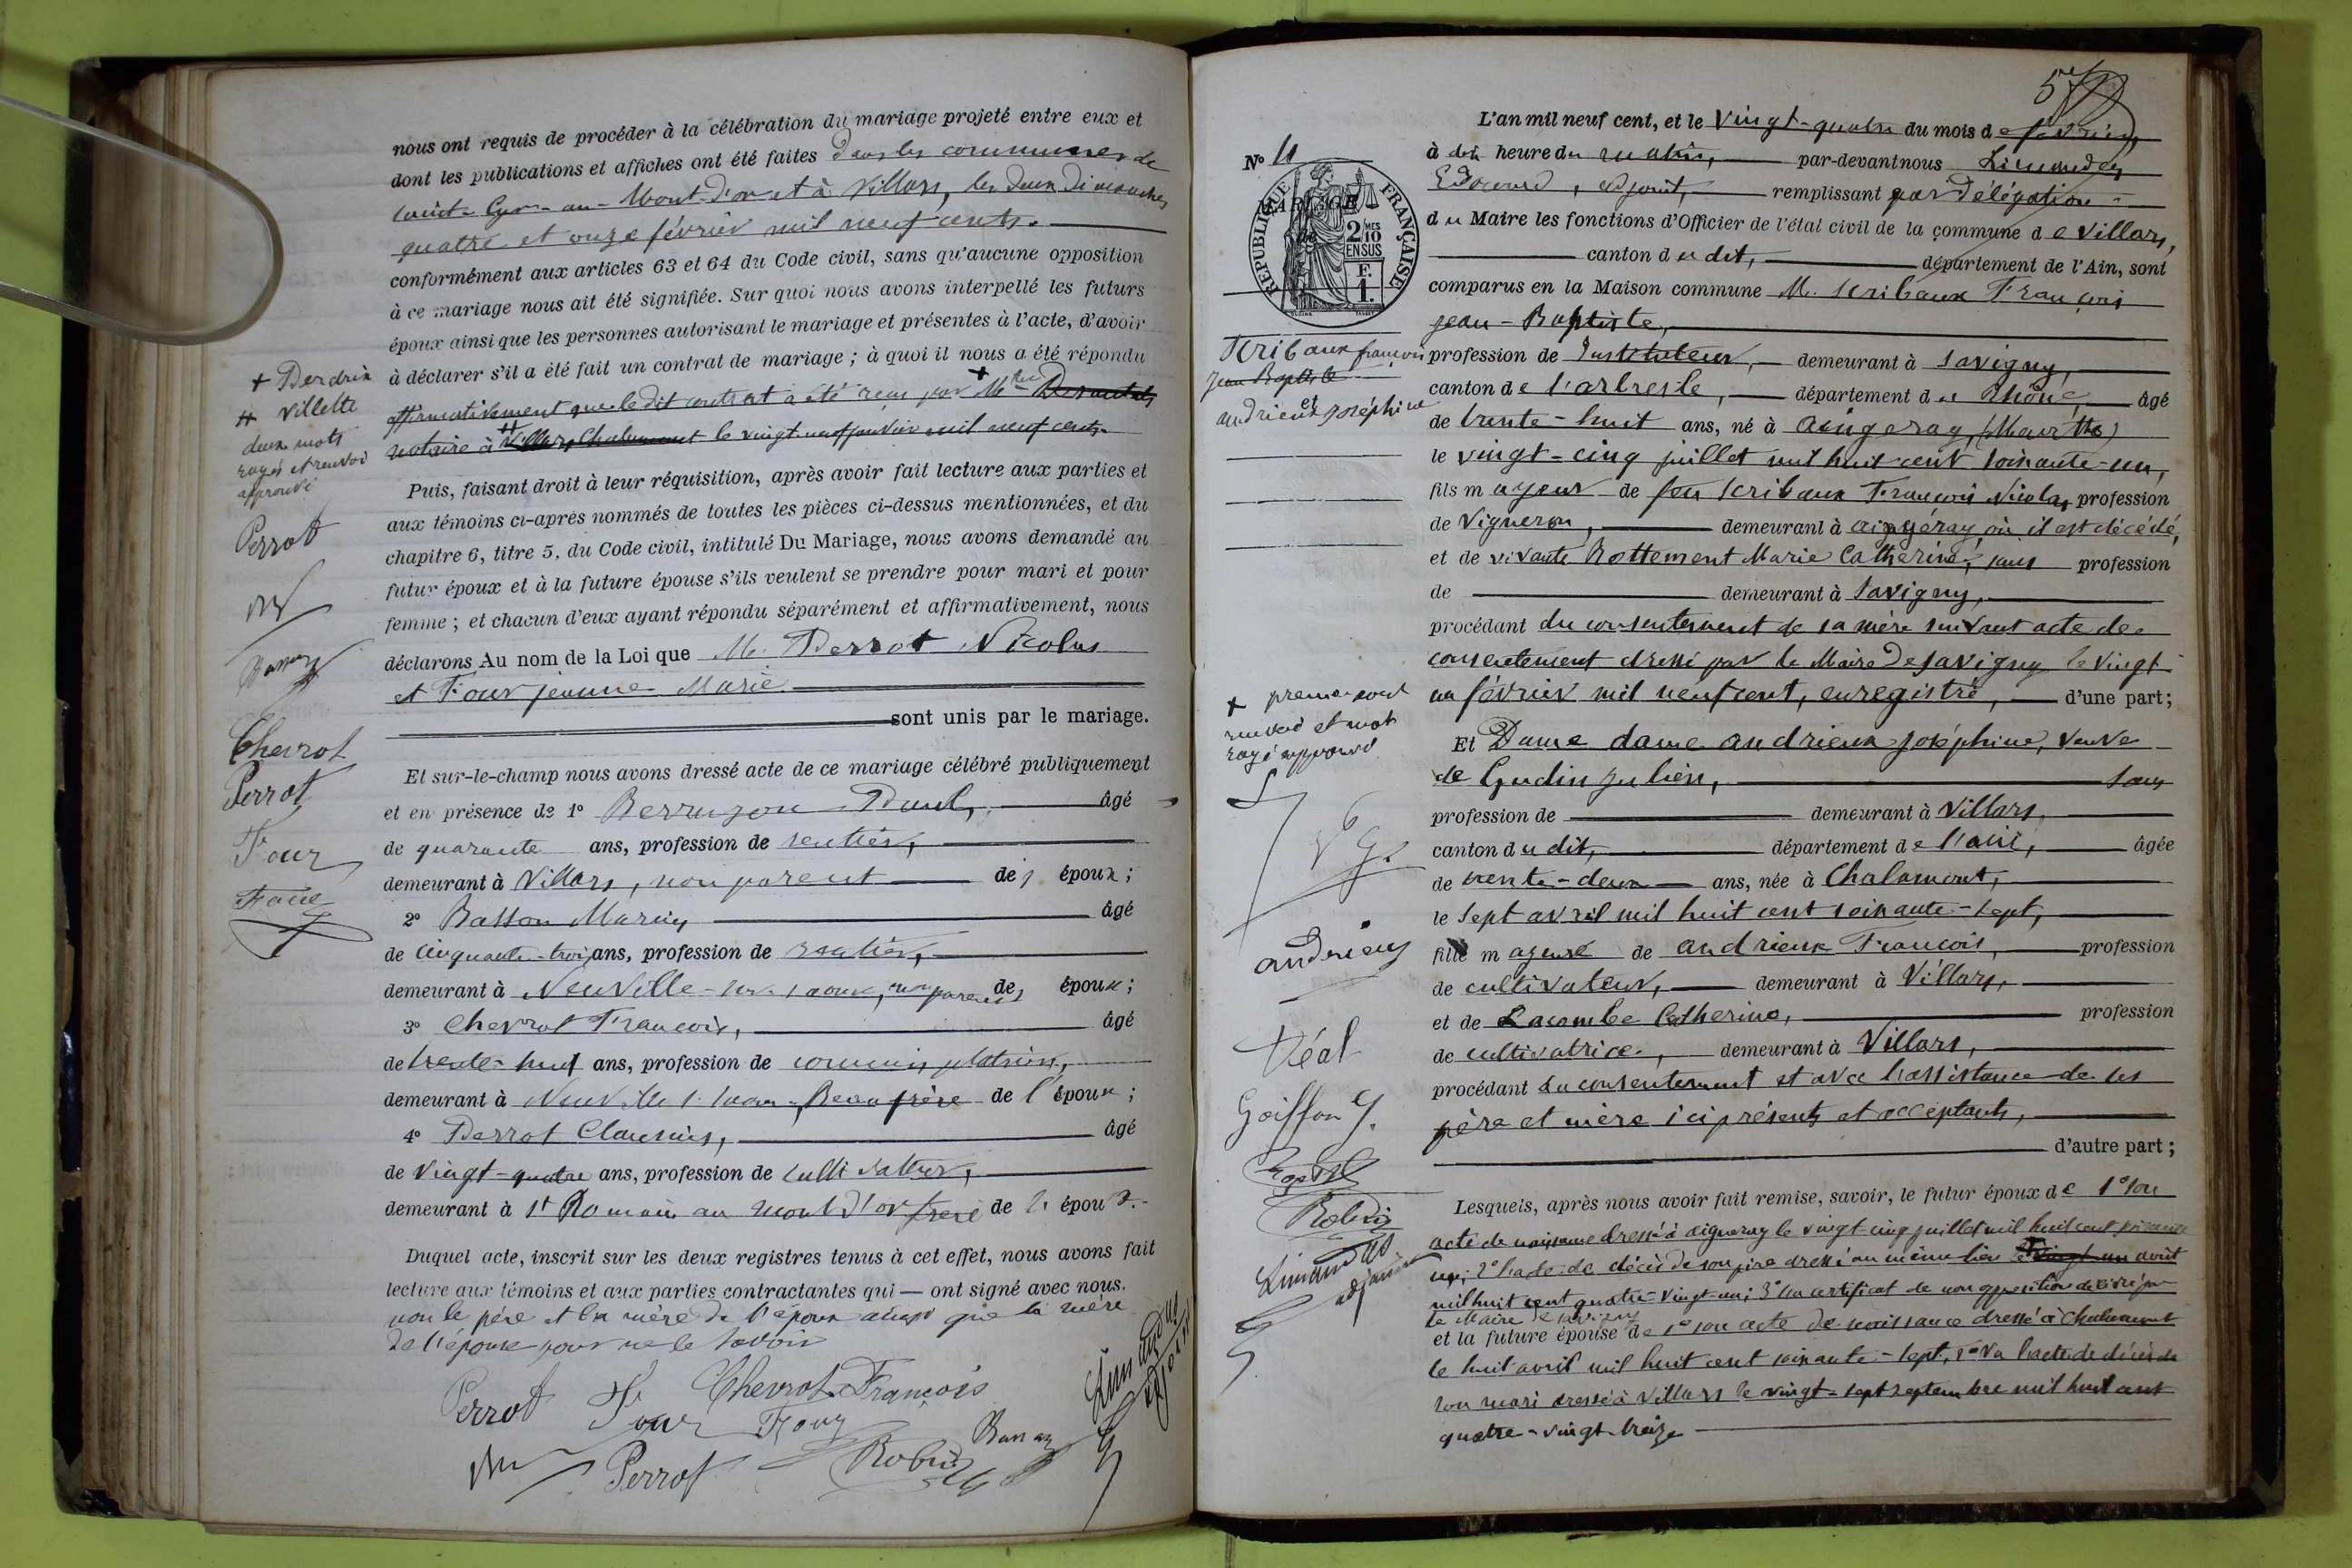 nous ont requis de procéder à la célébration du mariage projeté entre eux et
dont les publications et affiches ont été faites dans les communes de
Saint-Cyr-au-Mont-d'or et à Villars, les deux dimanches
quatre et onze février mil neuf cents.
conformément aux articles 63 et 64 du Code civil, sans qu'aucune opposition
à ce mariage nous ait été signifiée. Sur quoi nous avons interpellé les futurs
époux ainsi que les personnes autorisant le mariage et présentes à l'acte, d'avoir
à déclarer s'il a été fait un contrat de mariage ; à quoi il nous a été répondu
affirmativement que le dit contrat a été reçu par Me
notaire à Villars Chalamont le vingt neuf janvier mil neuf cents.
Puis, faisant droit à leur réquisition, après avoir fait lecture aux parties et
aux témoins ci-après nommés de toutes les pièces ci-dessus mentionnées, et du
chapitre 6, titre 5, du Code civil, intitulé Du Mariage, nous avons demandé au
futur époux et à la future épouse s'ils veulent se prendre pour mari et pour
femme ; et chacun d'eux ayant répondu séparément et affirmativement, nous
déclarons Au nom de la Loi que M. Perrot Nicolas
et Four jeanne Marie
sont unis par le mariage.
Et sur-le-champ nous avons dressé acte de ce mariage célébré publiquement
et en présence de 1° Paul, âgé
de quarante ans, profession de rentier,
demeurant à Villars, non parent des époux ;
2° Marius âgé
de cinquante-trois ans, profession de rentier,
demeurant à Neuville-sur-saone, non parent des époux ;
3° Chevrot François, âgé
de trente-huit ans, profession de commis,
demeurant à Neuville s. saone Beau frère de l'époux ;
4° Perrot Claudius, âgé
de vingt-quatre ans, profession de cultivateur,
demeurant à St Romain au mont d'or frère de l'époux.
Duquel acte, inscrit sur les deux registres tenus à cet effet, nous avons fait
lecture aux témoins et aux parties contractantes qui — ont signé avec nous.
non le père et la mère de l'époux ainsi que la mère
de l'épouse pour ne le savoir
Perrot Four Chevrot François
Four
Perrot Robin
+ Perdrix
++ Villette
deux mots
rayés et renvoi
approuvé
Perrot
Chevrot
Perrot
Four
Four
57
N° 11
MARIAGE
RÉPUBLIQUE FRANÇAISE
2/10
EN SUS
F.
1.
Scribaux françois
Jean Baptiste
et
andrieux joséphine
L'an mil neuf cent, et le vingt-quatre du mois de février,
à dix heure du matin, par-devant nous Limandas
Edouard, adjoint, remplissant par délégation
du Maire les fonctions d'Officier de l'état civil de la commune de Villars,
canton du dit, département de l'Ain, sont
comparus en la Maison commune M. Scribaux François
jean-Baptiste,
profession de Instituteur, demeurant à Savigny,
canton de l'arbresle, département du Rhône, âgé
de trente-huit ans, né à Aingeray, (Meurthe)
le vingt-cinq juillet mil huit cent soixante-un,
fils majeur de feu Scribaux François Nicolas profession
de Vigneron, demeurant à aingéray, où il est décédé,
et de vivante Rottement Marie Catherine, sans profession
de demeurant à Savigny,
procédant du consentement de sa mère suivant acte de
consentement dressé par le Maire de Savigny le vingt
un février mil neuf cent, enregistré, d'une part ;
Et Dame dame andrieux joséphine, veuve
de Gudin julien, sans
profession de demeurant à Villars,
canton du dit, département de l'ain, âgée
de trente-deux ans, née à Chalamont,
le sept avril mil huit cent soixante-sept,
fille majeure de andrieux François, profession
de cultivateur, demeurant à Villars,
et de Lacombe Catherine, profession
de cultivatrice, demeurant à Villars,
procédant du consentement et avec l'assistance de ses
père et mère ici présents et acceptants,
d'autre part ;
Lesquels, après nous avoir fait remise, savoir, le futur époux de 1° son
acte de naissance dressé à aigneray le vingt-cinq juillet mil huit cent soixante
un ; 2° l'acte de décès de son père dressé au même lieu le vingt un août
mil huit cent quatre-vingt-un ; 3° un certificat de non opposition délivré par
le Maire de Savigny
et la future épouse de 1° son acte de naissance dressé à Chalamont
le huit avril mil huit cent soixante-sept, 2° l'acte de décès de
son mari dressé à Villars le vingt-sept septembre mil huit cent
quatre-vingt-treize
+ premier août
renvoi et mot
rayé approuvé
andrieux
Véal
Goiffon
Robin
Limandas
adjoint